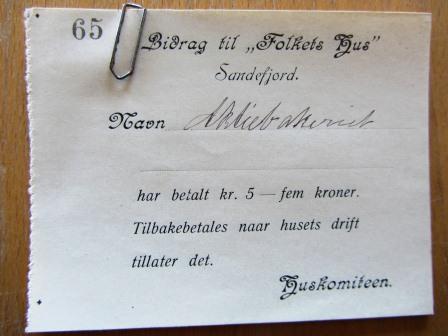 65
Bidrag til „Folkets Hus"
Sandefjord.
Navn Aktiebakeriet
har betalt kr. 5 — fem kroner.
Tilbakebetales naar husets drift
tillater det.
Huskomiteen.